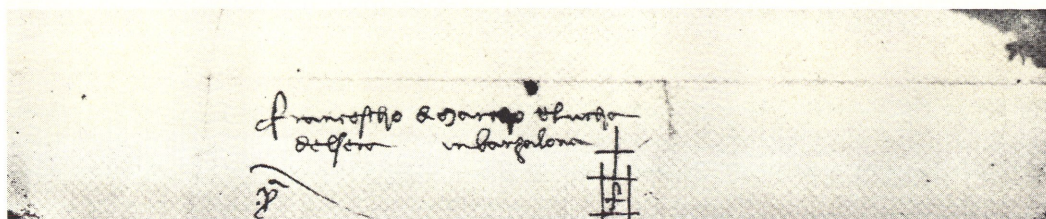 Francescho di Marcho e Lucha
del Sera in Barzalona